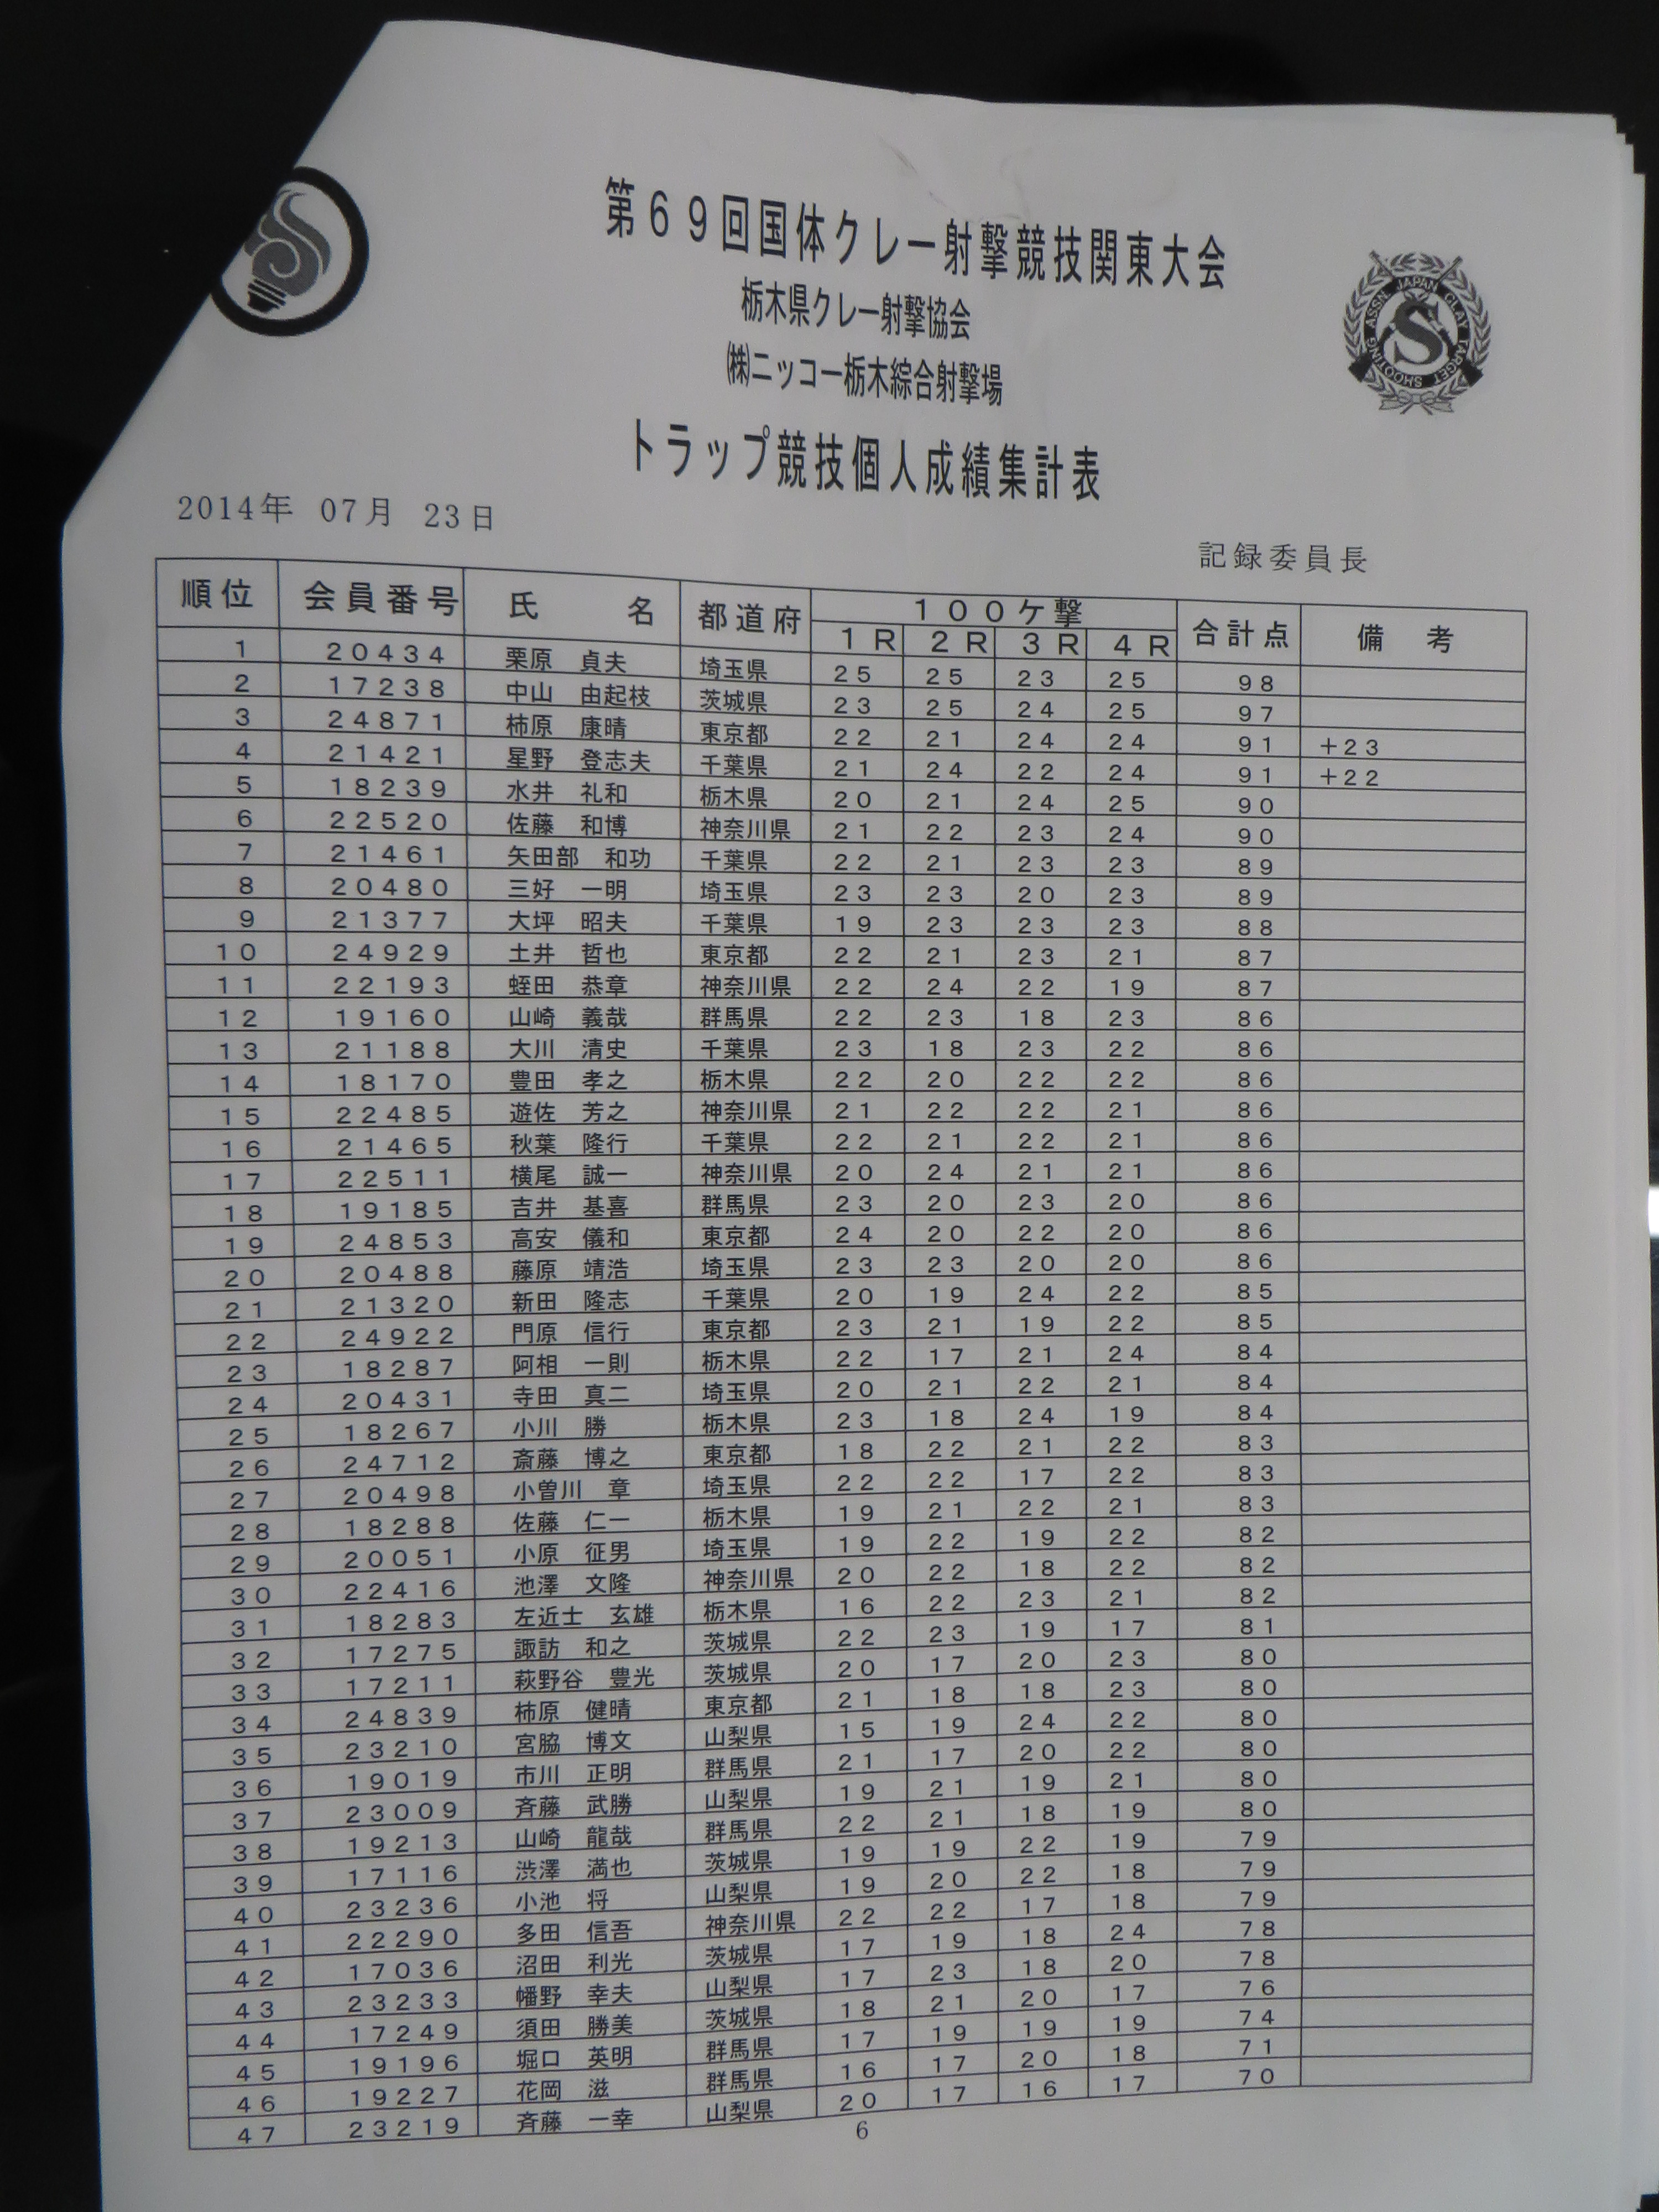 第69回国体クレー射撃競技関東大会
栃木県クレー射撃協会
㈱ニッコー栃木綜合射撃場
トラップ競技個人成績集計表
ASSN. JAPAN CLAY TARGET SHOOTING
S
2014年 07月 23日
記録委員長
順位 会員番号 氏 名 都道府 100ケ撃 合計点 備 考
1R 2R 3R 4R
1 20434 栗原 貞夫 埼玉県 25 25 23 25 98
2 17238 中山 由起枝 茨城県 23 25 24 25 97
3 24871 柿原 康晴 東京都 22 21 24 24 91 +23
4 21421 星野 登志夫 千葉県 21 24 22 24 91 +22
5 18239 水井 礼和 栃木県 20 21 24 25 90
6 22520 佐藤 和博 神奈川県 21 22 23 24 90
7 21461 矢田部 和功 千葉県 22 21 23 23 89
8 20480 三好 一明 埼玉県 23 23 20 23 89
9 21377 大坪 昭夫 千葉県 19 23 23 23 88
10 24929 土井 哲也 東京都 22 21 23 21 87
11 22193 蛭田 恭章 神奈川県 22 24 22 19 87
12 19160 山崎 義哉 群馬県 22 23 18 23 86
13 21188 大川 清史 千葉県 23 18 23 22 86
14 18170 豊田 孝之 栃木県 22 20 22 22 86
15 22485 遊佐 芳之 神奈川県 21 22 22 21 86
16 21465 秋葉 隆行 千葉県 22 21 22 21 86
17 22511 横尾 誠一 神奈川県 20 24 21 21 86
18 19185 吉井 基喜 群馬県 23 20 23 20 86
19 24853 高安 儀和 東京都 24 20 22 20 86
20 20488 藤原 靖浩 埼玉県 23 23 20 20 86
21 21320 新田 隆志 千葉県 20 19 24 22 85
22 24922 門原 信行 東京都 23 21 19 22 85
23 18287 阿相 一則 栃木県 22 17 21 24 84
24 20431 寺田 真二 埼玉県 20 21 22 21 84
25 18267 小川 勝 栃木県 23 18 24 19 84
26 24712 斎藤 博之 東京都 18 22 21 22 83
27 20498 小曽川 章 埼玉県 22 22 17 22 83
28 18288 佐藤 仁一 栃木県 19 21 22 21 83
29 20051 小原 征男 埼玉県 19 22 19 22 82
30 22416 池澤 文隆 神奈川県 20 22 18 22 82
31 18283 左近士 玄雄 栃木県 16 22 23 21 82
32 17275 諏訪 和之 茨城県 22 23 19 17 81
33 17211 萩野谷 豊光 茨城県 20 17 20 23 80
34 24839 柿原 健晴 東京都 21 18 18 23 80
35 23210 宮脇 博文 山梨県 15 19 24 22 80
36 19019 市川 正明 群馬県 21 17 20 22 80
37 23009 斉藤 武勝 山梨県 19 21 19 21 80
38 19213 山崎 龍哉 群馬県 22 21 18 19 80
39 17116 渋澤 満也 茨城県 19 19 22 19 79
40 23236 小池 将 山梨県 19 20 22 18 79
41 22290 多田 信吾 神奈川県 22 22 17 18 79
42 17036 沼田 利光 茨城県 17 19 18 24 78
43 23233 幡野 幸夫 山梨県 17 23 18 20 78
44 17249 須田 勝美 茨城県 18 21 20 17 76
45 19196 堀口 英明 群馬県 17 19 19 19 74
46 19227 花岡 滋 群馬県 16 17 20 18 71
47 23219 斉藤 一幸 山梨県 20 17 16 17 70
6